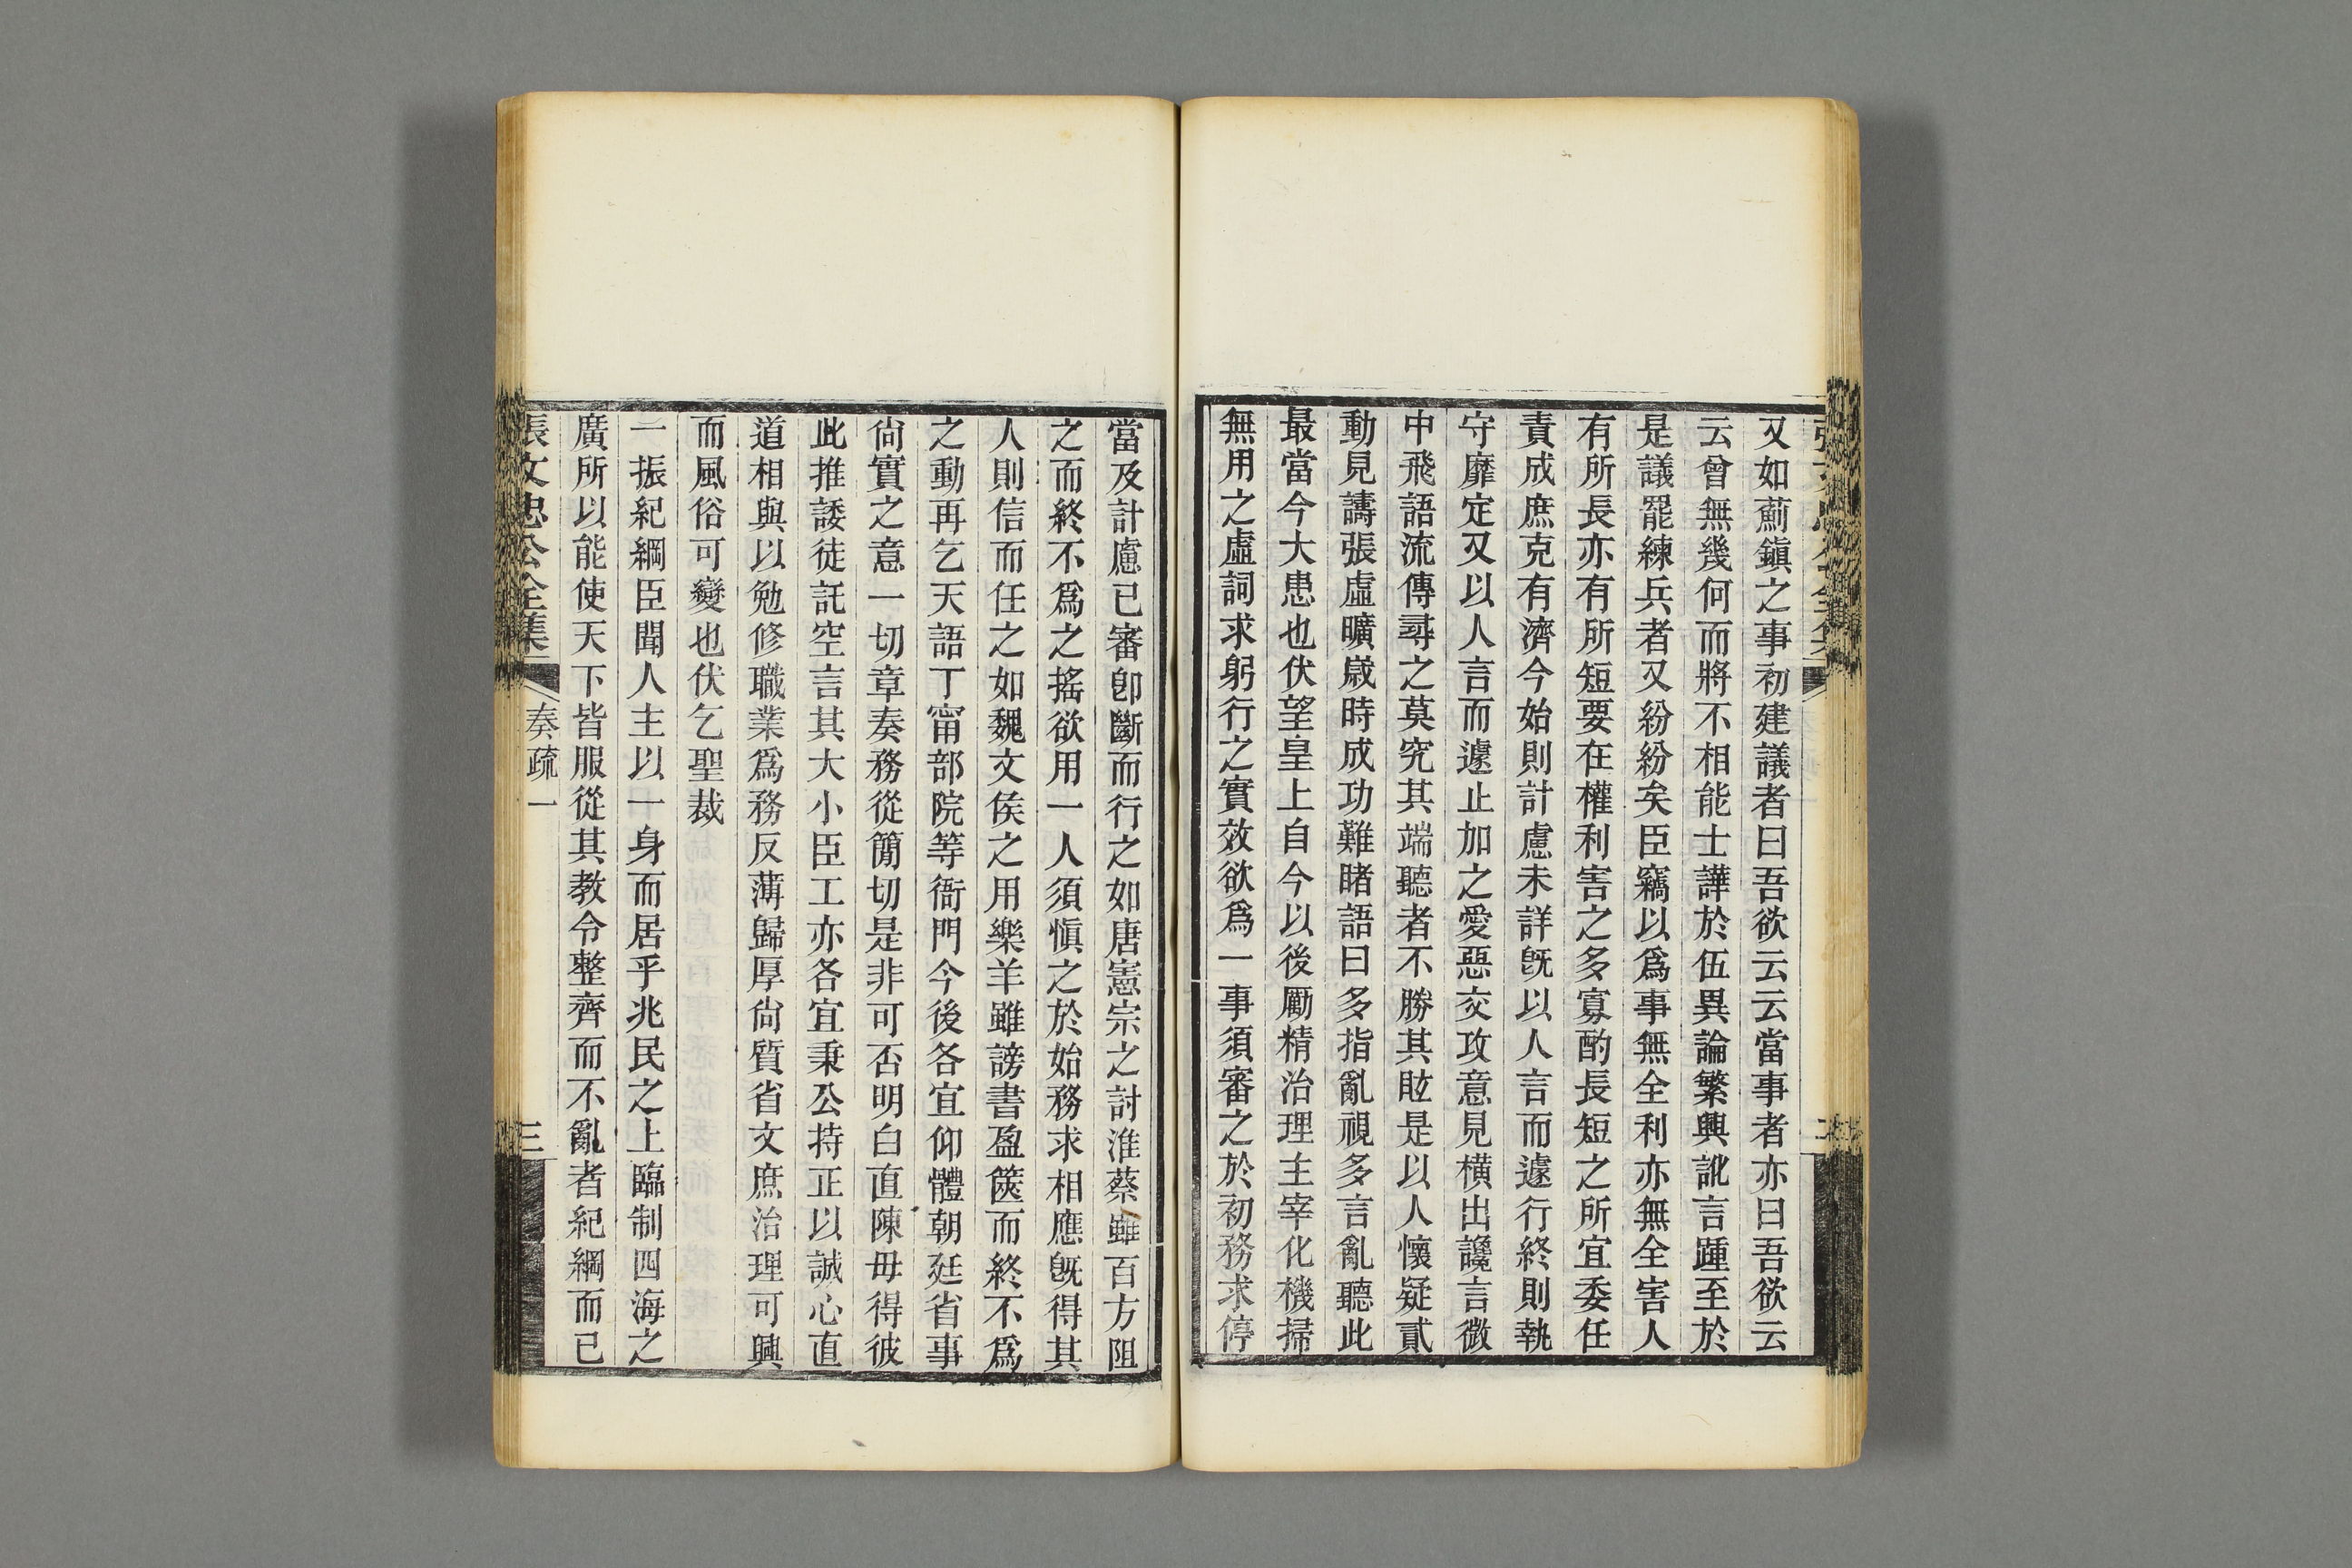 又如薊鎮之事初建議者曰吾欲云云當事者亦曰吾欲云
云曾無幾何而將不相能士譁於伍異論繁興訛言踵至於
是議罷練兵者又紛紛矣臣竊以爲事無全利亦無全害人
有所長亦有所短要在權利害之多寡酌長短之所宜委任
責成庶克有濟今始則計慮未詳旣以人言而遽行終則執
守靡定又以人言而遽止加之愛惡交攻意見橫出讒言微
中飛語流傳尋之莫究其端聽者不勝其眩是以人懷疑貳
動見譸張虛曠歲時成功難睹語曰多指亂視多言亂聽此
最當今大患也伏望皇上自今以後勵精治理主宰化機掃
無用之虛詞求躬行之實效欲爲一事須審之於初務求停
當及計慮已審卽斷而行之如唐憲宗之討淮蔡雖百方阻
之而終不爲之搖欲用一人須愼之於始務求相應旣得其
人則信而任之如魏文侯之用樂羊雖謗書盈篋而終不爲
之動再乞天語丁甯部院等衙門今後各宜仰體朝廷省事
尙實之意一切章奏務從簡切是非可否明白直陳毋得彼
此推諉徒託空言其大小臣工亦各宜秉公持正以誠心直
道相與以勉修職業爲務反薄歸厚尙質省文庶治理可興
而風俗可變也伏乞聖裁
一振紀綱臣聞人主以一身而居乎兆民之上臨制四海之
廣所以能使天下皆服從其教令整齊而不亂者紀綱而已
張文忠公全集 奏疏一 三